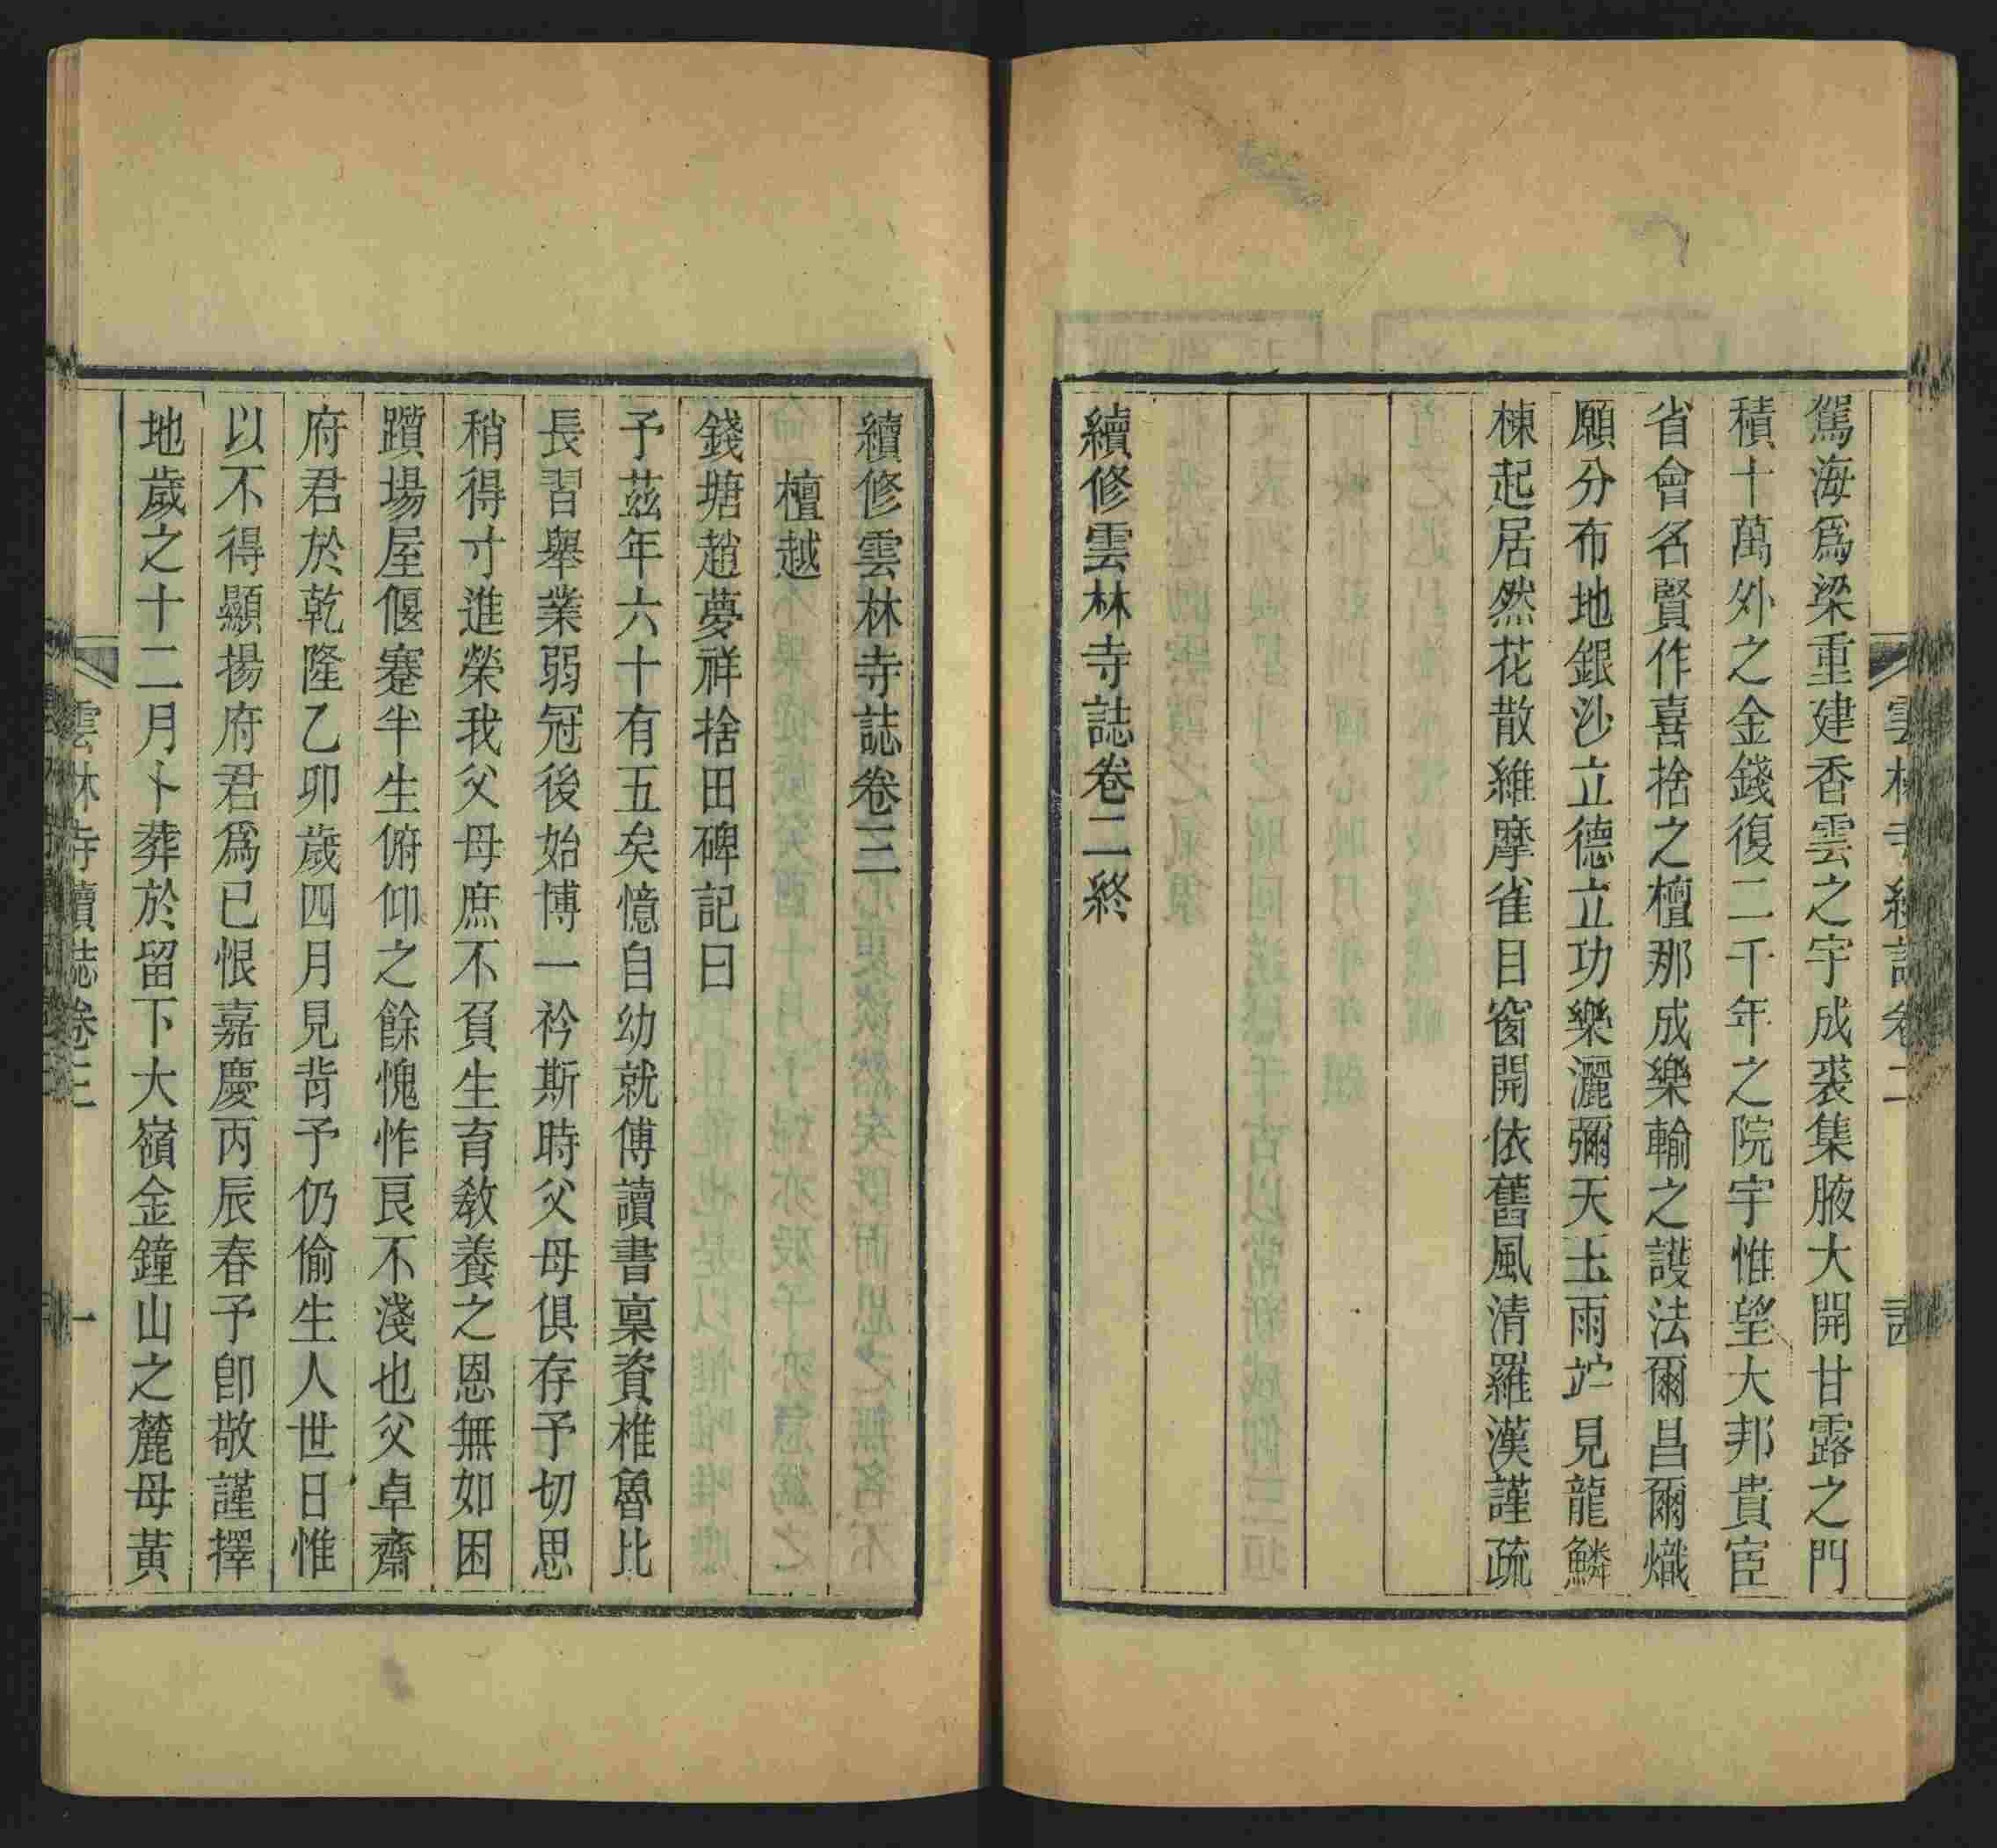 駕海爲梁重建香雲之宇成裘集腋大開甘露之門
積十萬外之金錢復二千年之院宇惟望大邦貴宦
省會名賢作喜捨之檀那成樂輸之護法爾昌爾熾
願分布地銀沙立德立功樂灑彌天玉雨竚見龍鱗
棟起居然花散維摩雀目窗開依舊風清羅漢謹疏
續修雲林寺誌卷二終
續修雲林寺誌卷三
檀越
錢塘趙夢祥捨田碑記曰
予茲年六十有五矣憶自幼就傅讀書稟資椎魯比
長習舉業弱冠後始博一衿斯時父母俱存予切思
稍得寸進榮我父母庶不負生育敎養之恩無如困
躓場屋偃蹇半生俯仰之餘愧怍良不淺也父卓齋
府君於乾隆乙卯歲四月見背予仍偷生人世日惟
以不得顯揚府君爲已恨嘉慶丙辰春予卽敬謹擇
地歲之十二月卜葬於留下大嶺金鐘山之麓母黃
雲林寺續誌卷三
一